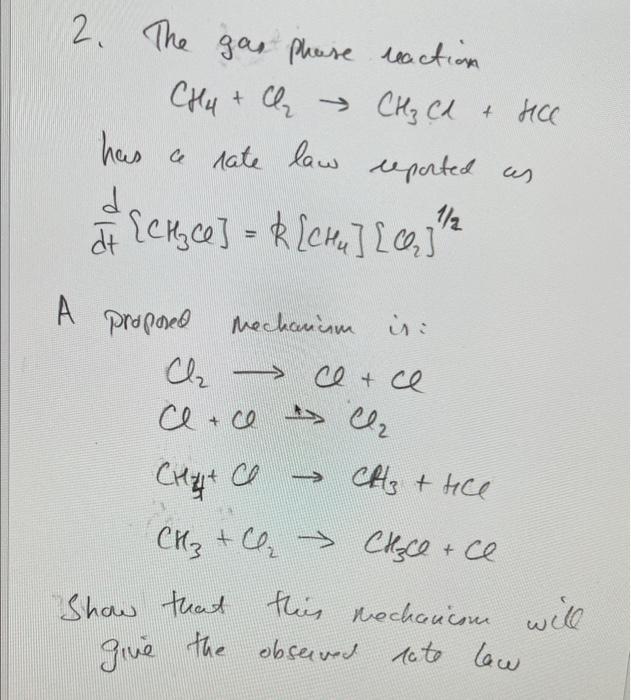 2. The gas phase reaction
CH4 + Cl2 → CH3Cl + HCl
has a rate law reported as
d/dt [CH3Cl] = k[CH4][Cl2]^1/2
A proposed mechanism is:
Cl2 → Cl + Cl
Cl + Cl → Cl2
CH4 + Cl → CH3 + HCl
CH3 + Cl2 → CH3Cl + Cl
Show that this mechanism will
give the observed rate law